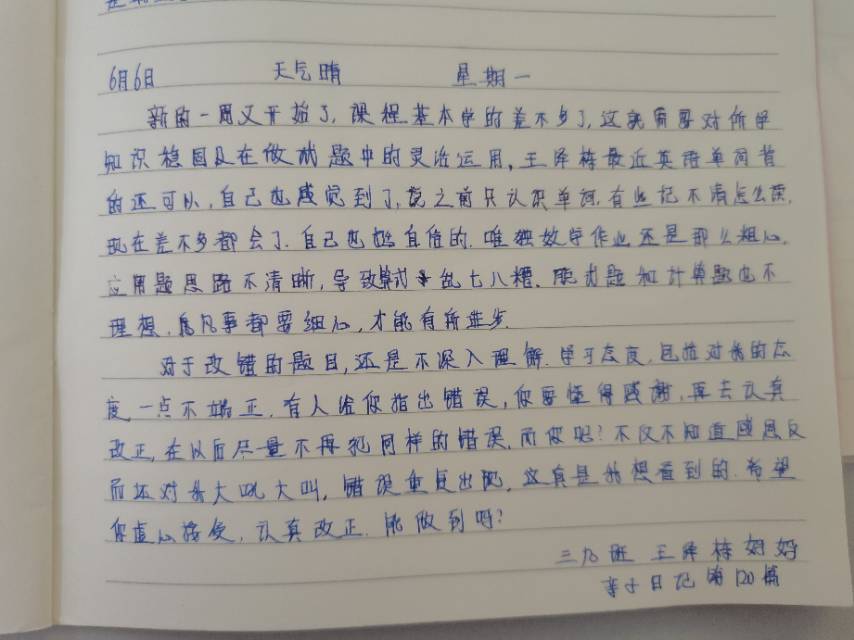 6月6日 天气晴 星期一
新的一周又开始了,课程基本学的差不多了,这就需要对所学
知识稳固及在做试题中的灵活运用,王泽栋最近英语单词背
的还可以,自己也感觉到了,说之前只认识单词,有些记不清怎么读,
现在差不多都会了.自己也挺自信的.唯独数学作业还是那么粗心,
应用题思路不清晰,导致算式乱七八糟.脱式题和计算题也不
理想.凡事都要细心,才能有所进步.
对于改错的题目,还是不深入理解.学习态度,包括对我的态
度,一点不端正.有人给你指出错误,你要懂得感谢,再去认真
改正,在以后尽量不再犯同样的错误.而你呢?不仅不知道感恩反
而还对我大吼大叫,错误重复出现,这真是我想看到的.希望
你虚心接受,认真改正.能做到吗?
三九班 王泽栋妈妈
亲子日记第120篇